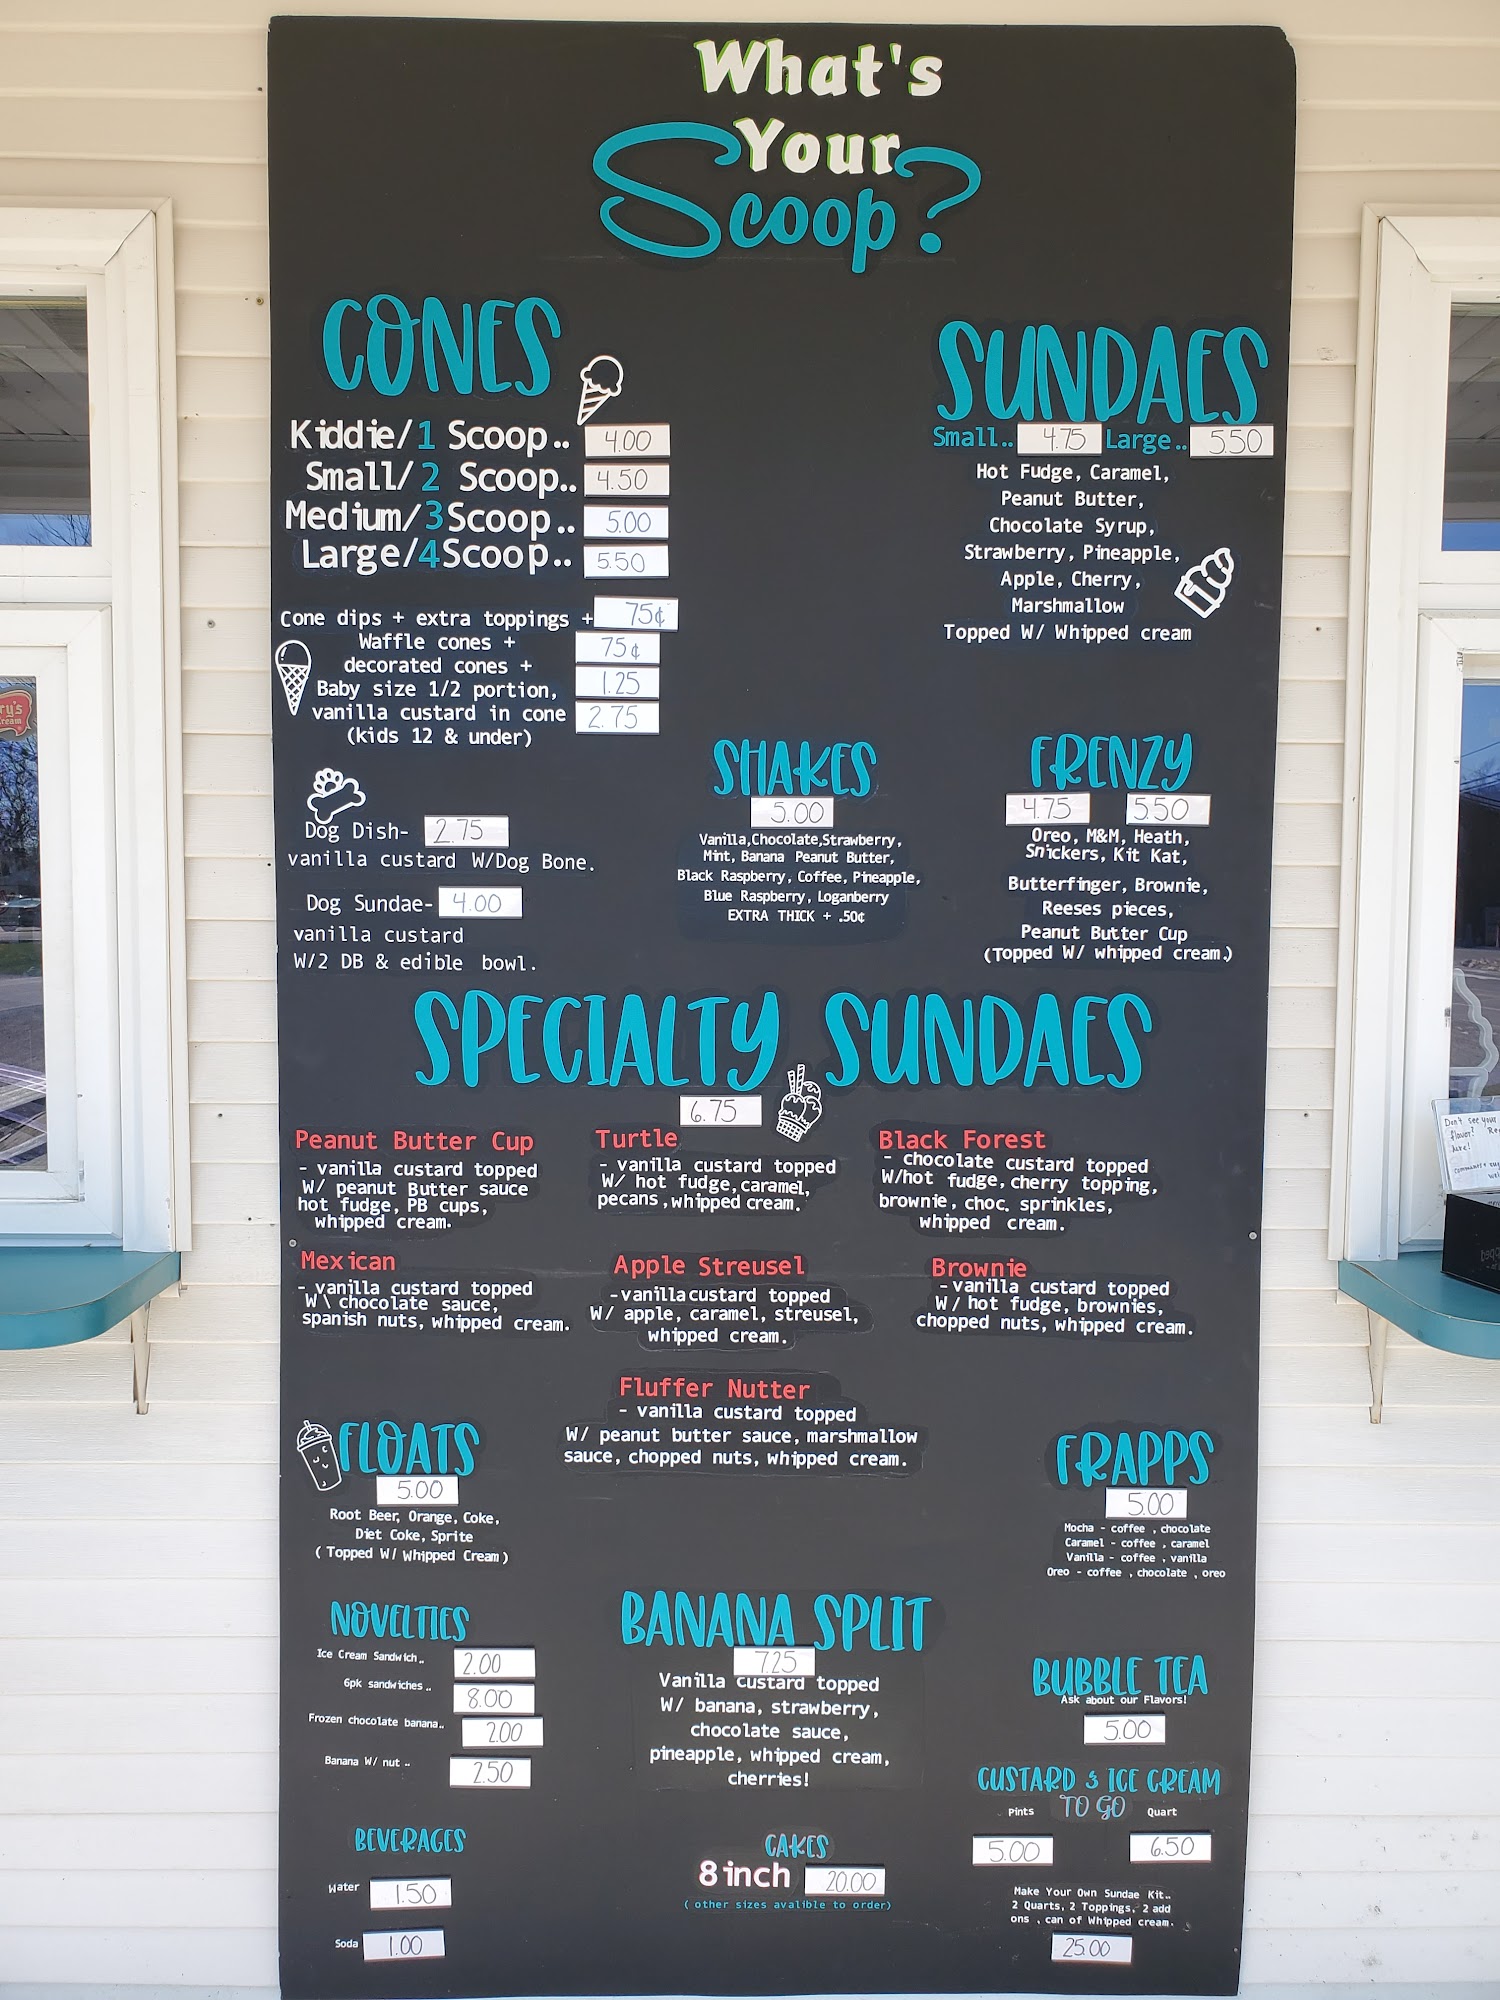 What's
Your
Scoop?
CONES
Kiddie/1 Scoop.. 4.00
Small/2 Scoop.. 4.50
Medium/3Scoop.. 5.00
Large/4Scoop.. 5.50
Cone dips + extra toppings + 75¢
Waffle cones + 75¢
decorated cones + 1.25
Baby size 1/2 portion,
vanilla custard in cone 2.75
(kids 12 & under)
Dog Dish- 2.75
vanilla custard W/Dog Bone.
Dog Sundae- 4.00
vanilla custard
W/2 DB & edible bowl.
SUNDAES
Small.. 4.75 Large.. 5.50
Hot Fudge, Caramel,
Peanut Butter,
Chocolate Syrup,
Strawberry, Pineapple,
Apple, Cherry,
Marshmallow
Topped W/ Whipped cream
SHAKES
5.00
Vanilla,Chocolate,Strawberry,
Mint, Banana Peanut Butter,
Black Raspberry, Coffee, Pineapple,
Blue Raspberry, Loganberry
EXTRA THICK + .50¢
FRENZY
4.75 5.50
Oreo, M&M, Heath,
Snickers, Kit Kat,
Butterfinger, Brownie,
Reeses pieces,
Peanut Butter Cup
(Topped W/ whipped cream.)
SPECIALTY SUNDAES
6.75
Peanut Butter Cup
- vanilla custard topped
W/ peanut Butter sauce
hot fudge, PB cups,
whipped cream.
Turtle
- vanilla custard topped
W/ hot fudge, caramel,
pecans, whipped cream.
Black Forest
- chocolate custard topped
W/hot fudge, cherry topping,
brownie, choc. sprinkles,
whipped cream.
Mexican
- vanilla custard topped
W\ chocolate sauce,
spanish nuts, whipped cream.
Apple Streusel
- vanilla custard topped
W/ apple, caramel, streusel,
whipped cream.
Brownie
- vanilla custard topped
W/ hot fudge, brownies,
chopped nuts, whipped cream.
Fluffer Nutter
- vanilla custard topped
W/ peanut butter sauce, marshmallow
sauce, chopped nuts, whipped cream.
FLOATS
5.00
Root Beer, Orange, Coke,
Diet Coke, Sprite
(Topped W/ Whipped Cream)
FRAPPS
5.00
Mocha - coffee , chocolate
Caramel - coffee , caramel
Vanilla - coffee , vanilla
Oreo - coffee , chocolate , oreo
NOVELTIES
Ice Cream Sandwich.. 2.00
6pk sandwiches .. 8.00
Frozen chocolate banana.. 2.00
Banana W/ nut .. 2.50
BANANA SPLIT
7.25
Vanilla custard topped
W/ banana, strawberry,
chocolate sauce,
pineapple, whipped cream,
cherries!
BUBBLE TEA
Ask about our Flavors!
5.00
CUSTARD & ICE CREAM
TO GO
Pints Quart
5.00 6.50
Make Your Own Sundae Kit..
2 Quarts, 2 Toppings, 2 add
ons , can of Whipped cream.
25.00
BEVERAGES
Water 1.50
Soda 1.00
CAKES
8inch 20.00
( other sizes avalible to order)
Don't see your
flavor?
here!